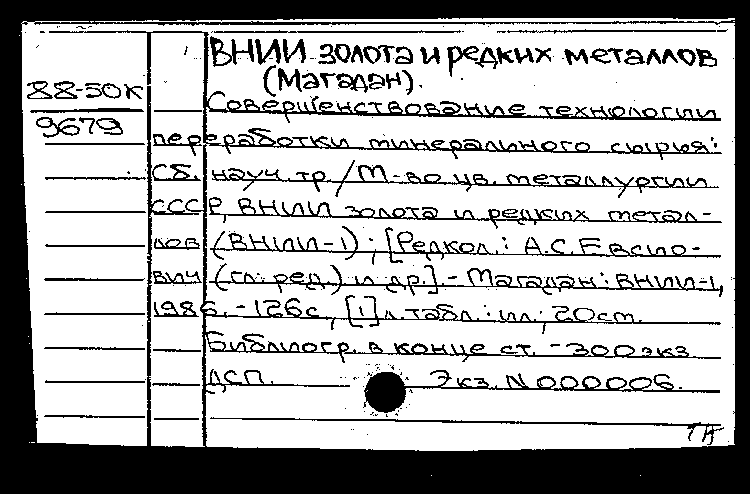 ВНИИ золота и редких металлов
(Магадан).
88-50К
9679
Совершенствование технологии
переработки минерального сырья:
Сб. науч. тр. / М-во цв. металлургии
СССР, ВНИИ золота и редких метал-
лов (ВНИИ-1) ; [Редкол.: А.С. Евсио-
вич (гл. ред.) и др.] - Магадан: ВНИИ-1,
1986. - 126с., [1] л. табл. : ил.; 20см.
Библиогр. в конце ст. - 300 экз.
ДСП. Экз. N 000006.